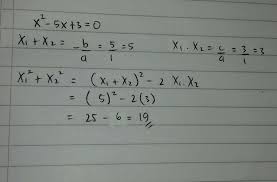 x² - 5x + 3 = 0
x₁ + x₂ = -b/a = 5/1 = 5    x₁ . x₂ = c/a = 3/1 = 3
x₁² + x₂² = (x₁ + x₂)² - 2 x₁.x₂
= (5)² - 2(3)
= 25 - 6 = 19